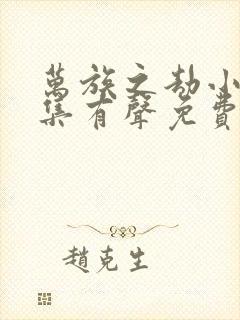 萬族之劫小
集有聲免費
趙克生